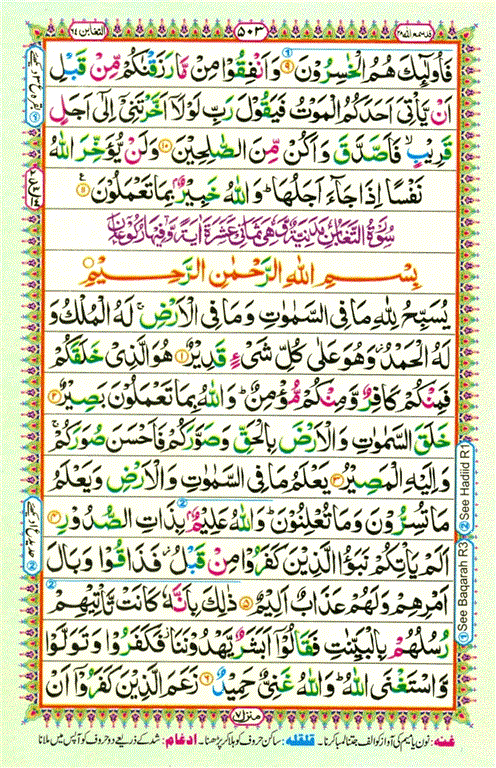 قد سمع الله ٢٨
٥٠٣
التغابن ٦٤
فَاُولٰٓئِكَ هُمُ الْخٰسِرُوْنَ ۹ وَاَنْفِقُوْا مِنْ مَّا رَزَقْنٰكُمْ مِّنْ قَبْلِ
اَنْ يَّاْتِيَ اَحَدَكُمُ الْمَوْتُ فَيَقُوْلَ رَبِّ لَوْلَاۤ اَخَّرْتَنِيْۤ اِلٰۤى اَجَلٍ
قَرِيْبٍۙ فَاَصَّدَّقَ وَاَكُنْ مِّنَ الصّٰلِحِيْنَ ۱۰ وَلَنْ يُّؤَخِّرَ اللّٰهُ
نَفْسًا اِذَا جَآءَ اَجَلُهَاؕ وَاللّٰهُ خَبِيْرٌۢ بِمَا تَعْمَلُوْنَ ۱۱
سُوْرَةُ التَّغَابُنِ مَدَنِيَّةٌ وَّهِيَ ثَمَانِيَ عَشْرَةَ اٰيَةً وَّفِيْهَا رُكُوْعَانِ
بِسْمِ اللّٰهِ الرَّحْمٰنِ الرَّحِيْمِ
يُسَبِّحُ لِلّٰهِ مَا فِي السَّمٰوٰتِ وَمَا فِي الْاَرْضِۚ لَهُ الْمُلْكُ وَ
لَهُ الْحَمْدُؗ وَهُوَ عَلٰى كُلِّ شَيْءٍ قَدِيْرٌ ۱ هُوَ الَّذِيْ خَلَقَكُمْ
فَمِنْكُمْ كَافِرٌ وَّمِنْكُمْ مُّؤْمِنٌؕ وَاللّٰهُ بِمَا تَعْمَلُوْنَ بَصِيْرٌ ۲
خَلَقَ السَّمٰوٰتِ وَالْاَرْضَ بِالْحَقِّ وَصَوَّرَكُمْ فَاَحْسَنَ صُوَرَكُمْۚ
وَاِلَيْهِ الْمَصِيْرُ ۳ يَعْلَمُ مَا فِي السَّمٰوٰتِ وَالْاَرْضِ وَيَعْلَمُ
مَا تُسِرُّوْنَ وَمَا تُعْلِنُوْنَؕ وَاللّٰهُ عَلِيْمٌۢ بِذَاتِ الصُّدُوْرِ ۴
اَلَمْ يَاْتِكُمْ نَبَؤُا الَّذِيْنَ كَفَرُوْا مِنْ قَبْلُؗ فَذَاقُوْا وَبَالَ
اَمْرِهِمْ وَلَهُمْ عَذَابٌ اَلِيْمٌ ۵ ذٰلِكَ بِاَنَّهٗ كَانَتْ تَّاْتِيْهِمْ
رُسُلُهُمْ بِالْبَيِّنٰتِ فَقَالُوْۤا اَبَشَرٌ يَّهْدُوْنَنَاؗ فَكَفَرُوْا وَتَوَلَّوْا
وَّاسْتَغْنَى اللّٰهُؕ وَاللّٰهُ غَنِيٌّ حَمِيْدٌ ۶ زَعَمَ الَّذِيْنَ كَفَرُوْۤا اَنْ
② See Hadiid R1
① See Baqarah R3
منزل ۷
غنه: نون یا میم کی آواز کو الف جتنا لمبا کرنا۔ قلقله: ساکن حروف کو ہلا کر پڑھنا۔ ادغام: شد کے ذریعے دو حروف کو آپس میں ملانا